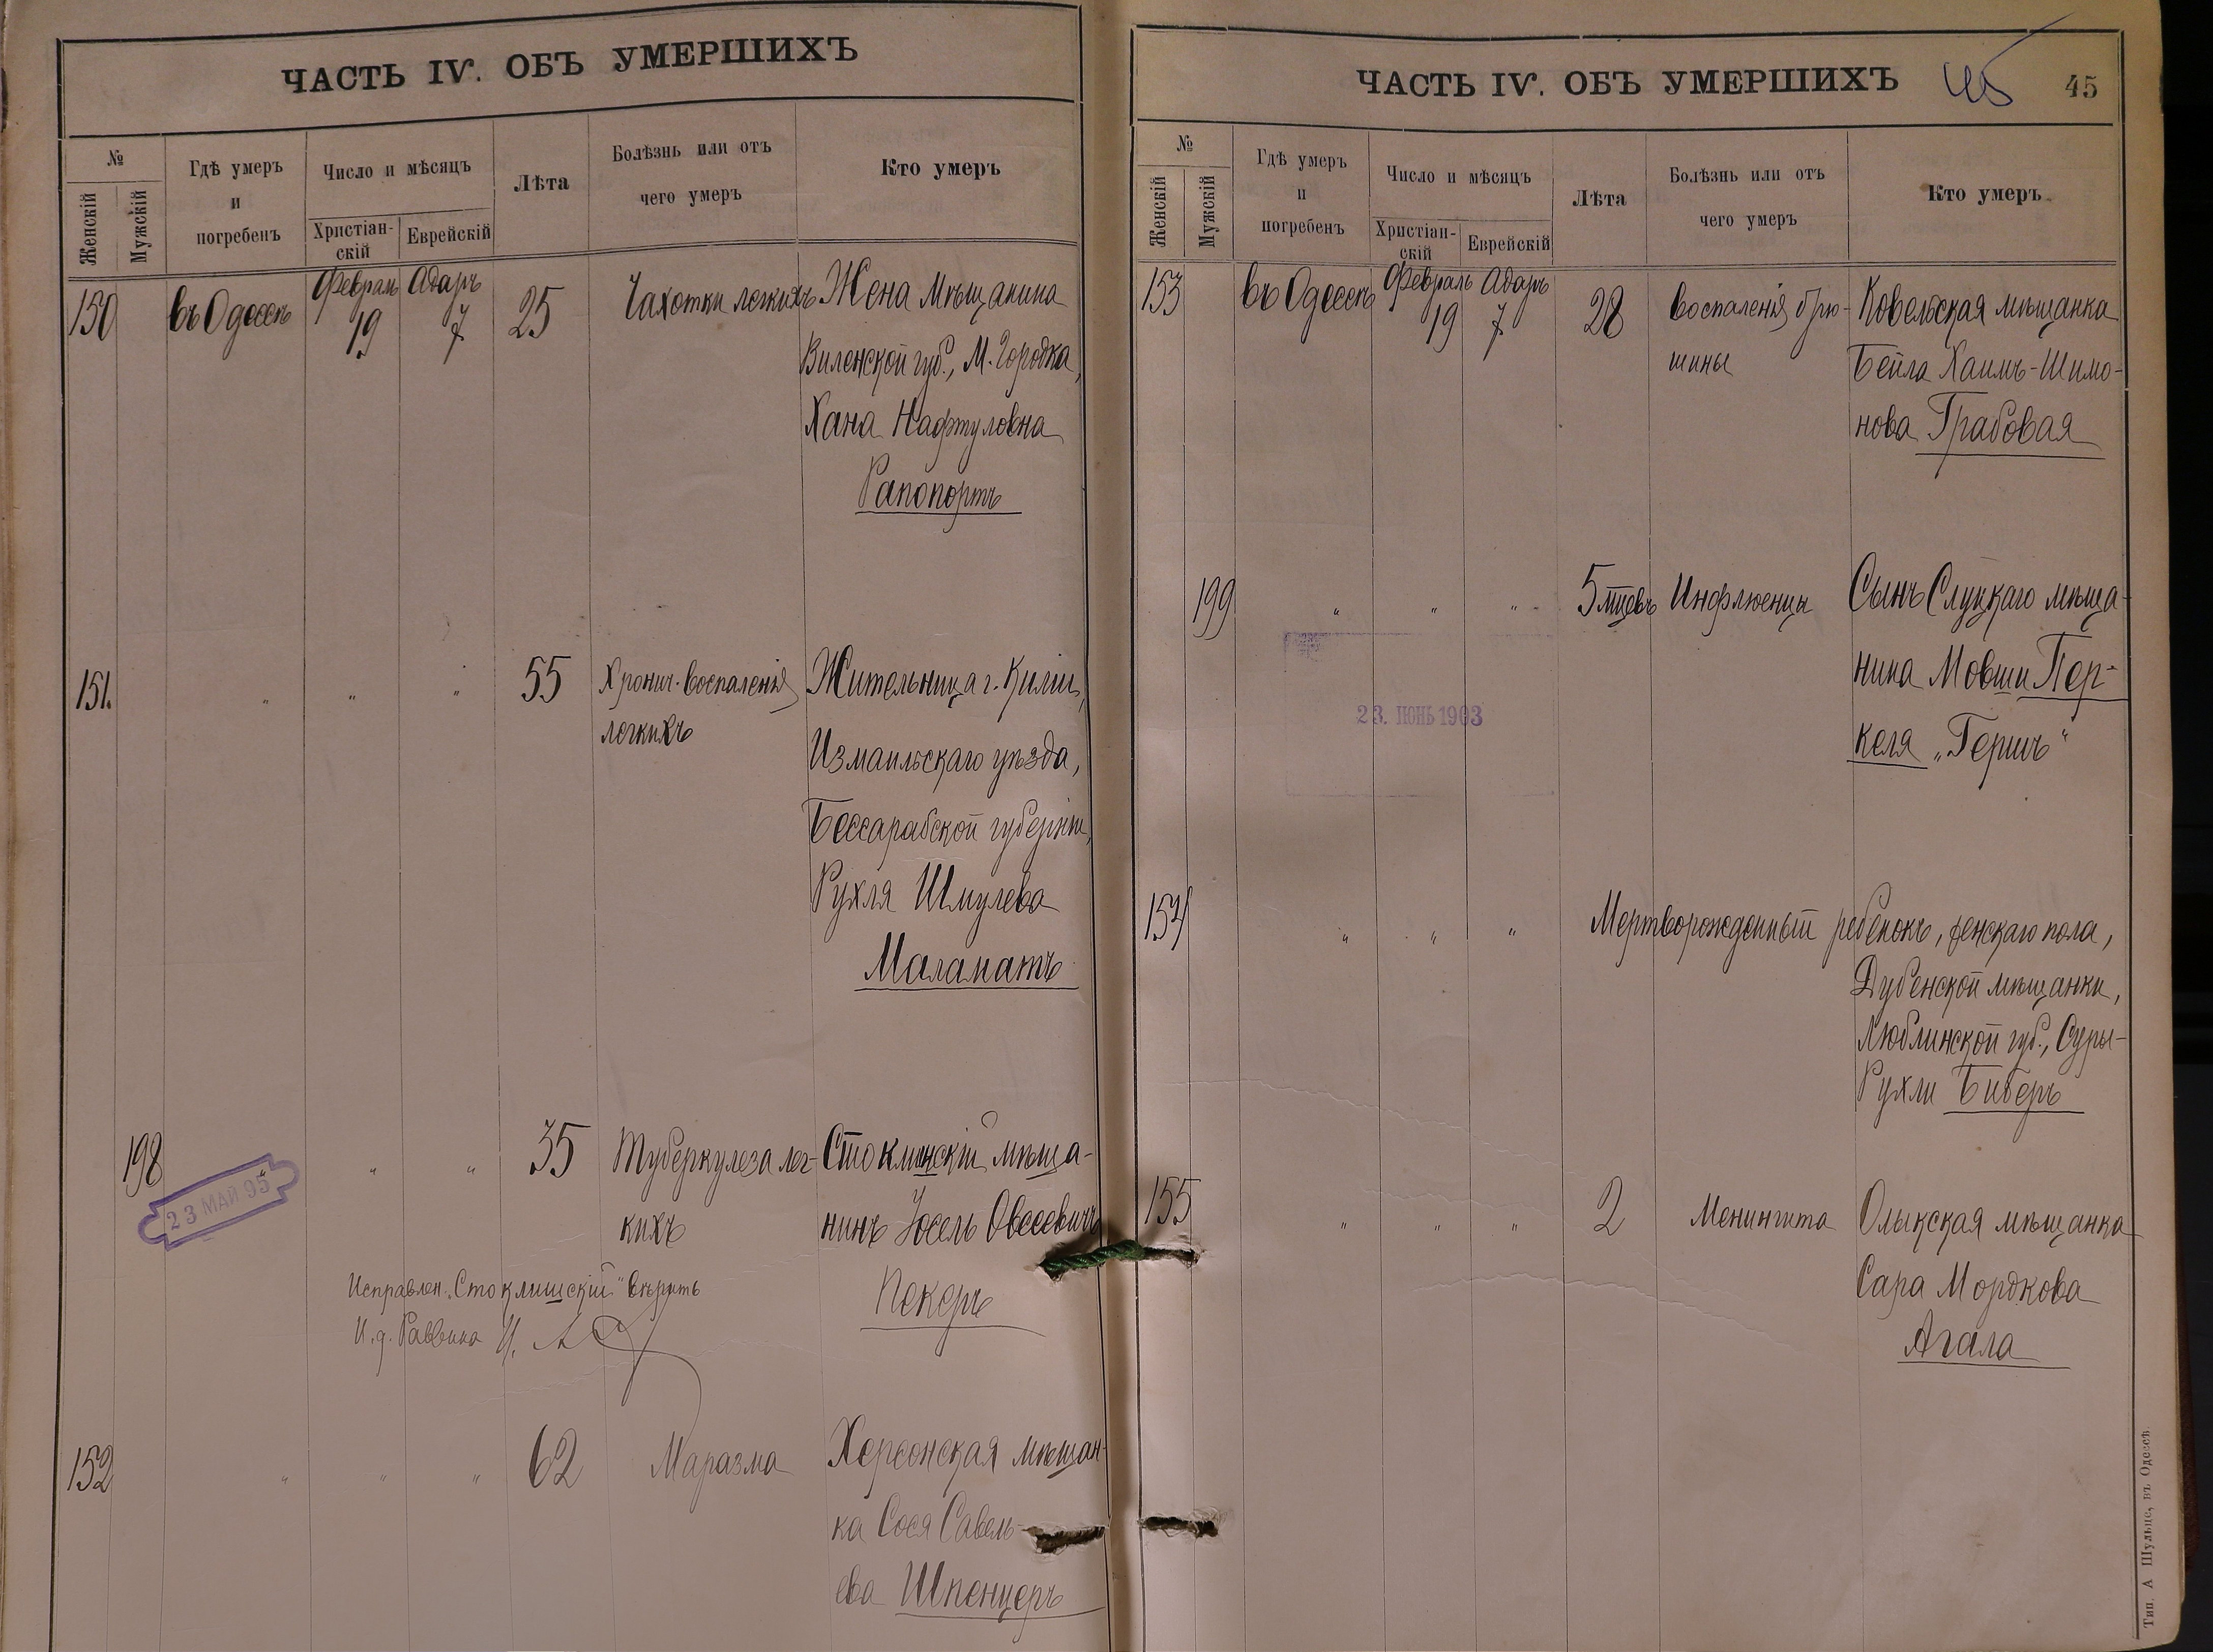 ЧАСТЬ IV. ОБЪ УМЕРШИХЪ
№
Женскій
Мужскій
Гдѣ умеръ
и
погребенъ
Число и мѣсяцъ
Христіан-
скій
Еврейскій
Лѣта
Болѣзнь или отъ
чего умеръ
Кто умеръ
150
въ Одессѣ
Февраль
19
Адаръ
7
25
Чахотки легкихъ
Жена Мѣщанина
Виленской губ., М. Городка,
Хана Нафтуловна
Рапопортъ
151.
" " "
55
Хронич. воспаленія
легкихъ
Жительница г. Киліи,
Измаильскаго уѣзда,
Бессарабской губерніи,
Рухля Шмулева
Маламатъ
198
" "
35
Туберкулеза лег-
кихъ
Стоклишскій мѣща-
нинъ Іосель Овсеевичъ
Пекеръ
23 МАЙ 95
Исправлен. „Стоклишскій" вѣрить
И. д. Раввина
152
" " "
62
Маразма
Херсонская мѣщан-
ка Сося Савель-
ева Шпенцеръ
ЧАСТЬ IV. ОБЪ УМЕРШИХЪ
45
45
№
Женскій
Мужскій
Гдѣ умеръ
и
погребенъ
Число и мѣсяцъ
Христіан-
скій
Еврейскій
Лѣта
Болѣзнь или отъ
чего умеръ
Кто умеръ
153
въ Одессѣ
Февраль
19
Адаръ
7
28
Воспаленія брю-
шины
Ковельская мѣщанка
Бейла Хаимъ-Шимо-
нова Грабовая
199
" " "
5 мцевъ
Инфлюенцы
Сынъ Слуцкаго мѣща-
нина Мовши Пер-
келя „Гершъ"
23. ІЮНЬ 1903
154
" " "
Мертворожденный ребенокъ, женскаго пола,
Дубенской мѣщанки,
Люблинской губ., Суры-
Рухли Биберъ
155
" " "
2
Менингита
Олыкская мѣщанка
Сара Мордкова
Агала
Тип. А Шульце, въ Одессѣ.